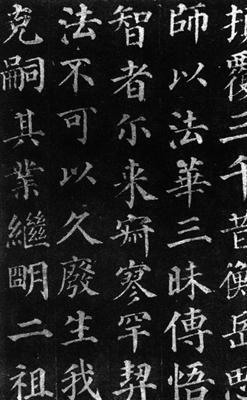 指覆三千昔衡岳思
師以法華三昧傳悟
智者尔来寂寥罕契
法不可以久廢生我
克嗣其業繼明二祖